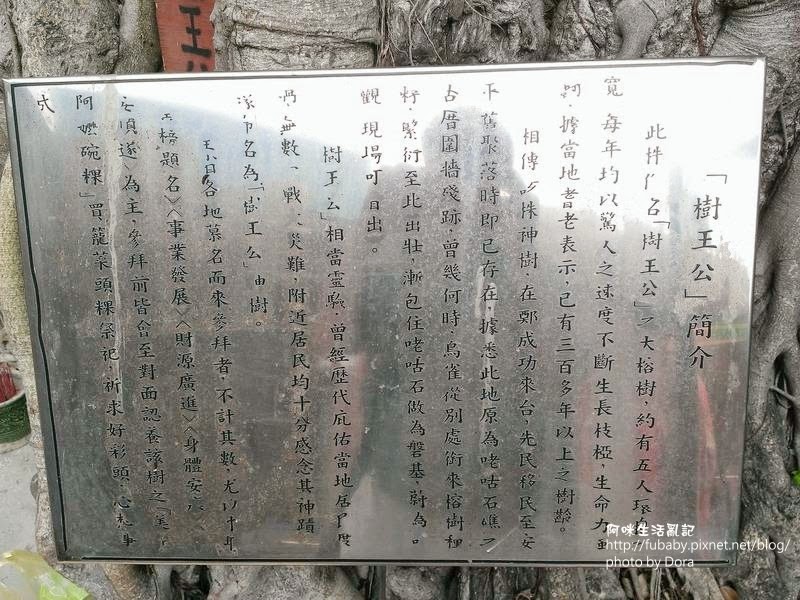 王公
「樹王公」簡介
此 「樹王公」 大榕樹,約有五人環
寬 每年均以驚人之速度不斷生長枝椏,生命力
據當地耆老表示,已有三百多年以上之樹齡。
相傳 株神樹,在鄭成功來台,先民移民至安
平舊聚落時即已存在,據悉此地原為咾咕石
古厝圍墻殘跡,曾幾何時,鳥雀從別處銜來榕樹種
籽,繁衍至此 壯,漸包住咾咕石做為磐基,蔚為
觀 現場可 出。
樹王公」相當靈驗,曾經歷代庇佑當地居
無數 戰 災難,附近居民均十分感念其神蹟
名為「樹王公」由樹。
各地慕名而來參拜者,不計其數,尤以 年
榜題名〉〈事業發展〉〈財源廣進〉〈身體安
順遂 為主,參拜前皆會至對面認養該樹之
阿嬤碗粿」買籠菜頭粿祭祀,祈求好彩頭 心想事
阿咪生活亂記
http://fubaby.pixnet.net/blog/
photo by Dora